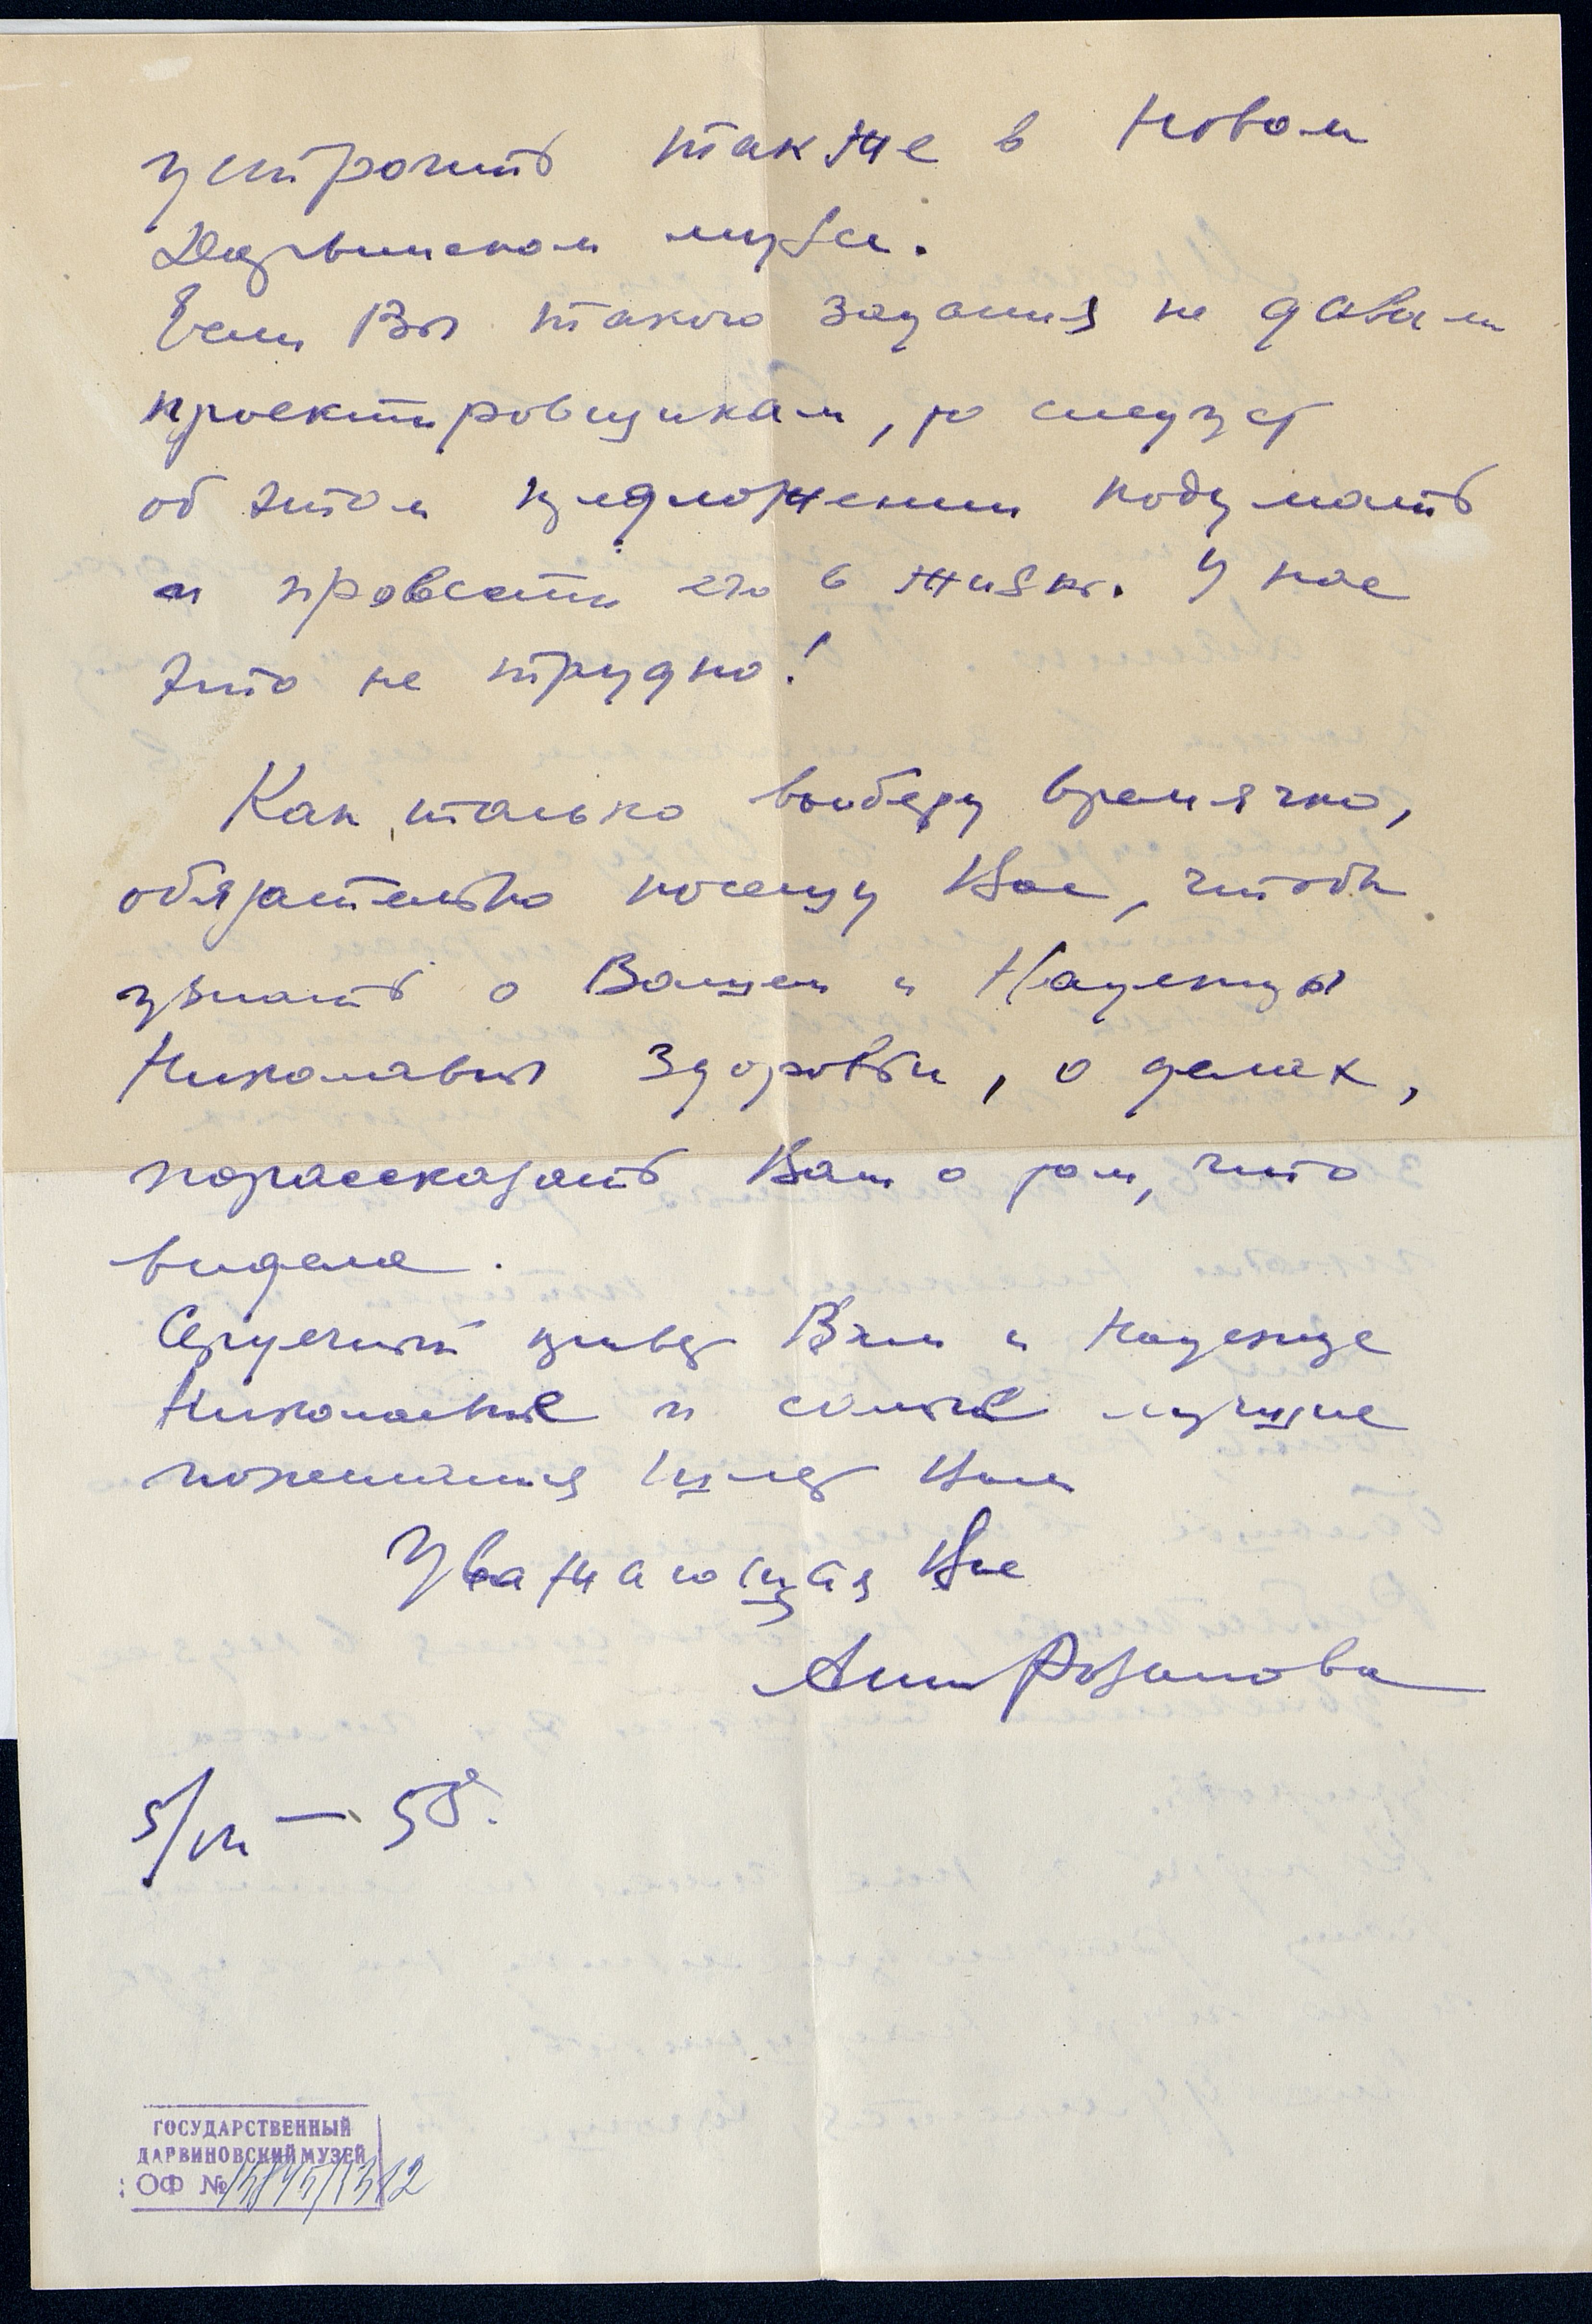 устроить также в новом
Дарвинском музее.
Если Вы такого задания не давали
проектировщикам, то следует
об этом предложении подумать
и провести его в жизнь. У нас
это не трудно!
Как только выберу времячко,
обязательно посещу Вас, чтобы
узнать о Вашем и Надежды
Николавны здоровьи, о делах,
порассказать Вам о том, что
видела.
Сердечный привет Вам и Надежде
Николавне и самые лучшие
пожелания шлет Вам
Уважающая Вас
Анна Розанова
5/VII — 58.
ГОСУДАРСТВЕННЫЙ
ДАРВИНОВСКИЙ МУЗЕЙ
ОФ №